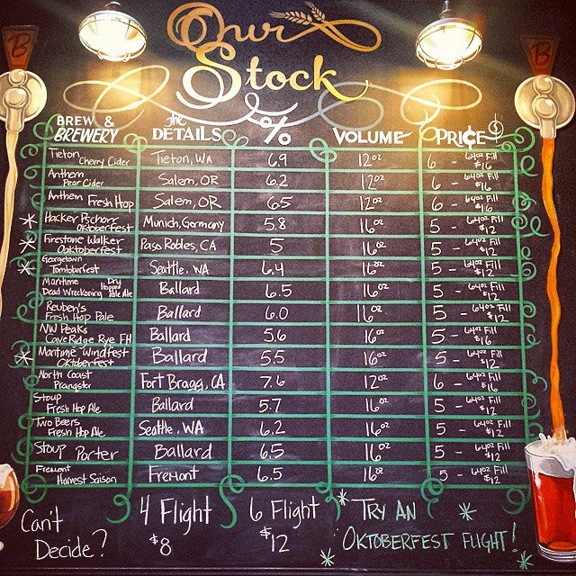 Our
Stock
BREW & BREWERY The DETAILS % VOLUME PRICE
Tieton Cherry Cider Tieton, WA 6.9 12oz 6 - 64oz Fill $16
Anthem Pear Cider Salem, OR 6.2 12oz 6 - 64oz Fill $16
Anthem Fresh Hop Salem, OR 6.5 12oz 6 - 64oz Fill $16
* Hacker Pschorr Oktoberfest Munich, Germany 5.8 16oz 5 - 64oz Fill $12
* Firestone Walker Oaktoberfest Paso Robles, CA 5 16oz 5 - 64oz Fill $12
* Georgetown Tomtoberfest Seattle, WA 6.4 16oz 5 - 64oz Fill $12
Maritime Dead Wreckoning Dry Hopped Pale Ale Ballard 6.5 16oz 5 - 64oz Fill $12
Reuben's Fresh Hop Pale Ballard 6.0 16oz 5 - 64oz Fill $12
NW Peaks Cave Ridge Rye FH Ballard 5.6 16oz 5 - 64oz Fill
* Maritime Windfest Oktoberfest Ballard 5.5 16oz 5 - 64oz Fill $12
North Coast Pranqster Fort Bragg, CA 7.6 12oz 6 - 64oz Fill $16
Stoup Fresh Hop Ale Ballard 5.7 16oz 5 - 64oz Fill $12
Two Beers Fresh Hop Ale Seattle, WA 6.2 16oz 5 - 64oz Fill $12
Stoup Porter Ballard 6.5 16oz 5 - 64oz Fill $12
Fremont Harvest Saison Fremont 6.5 16oz 5 - 64oz Fill $12
Can't Decide?
4 Flight $8
6 Flight $12
* TRY AN *
* OKTOBERFEST FLIGHT! *
B
B